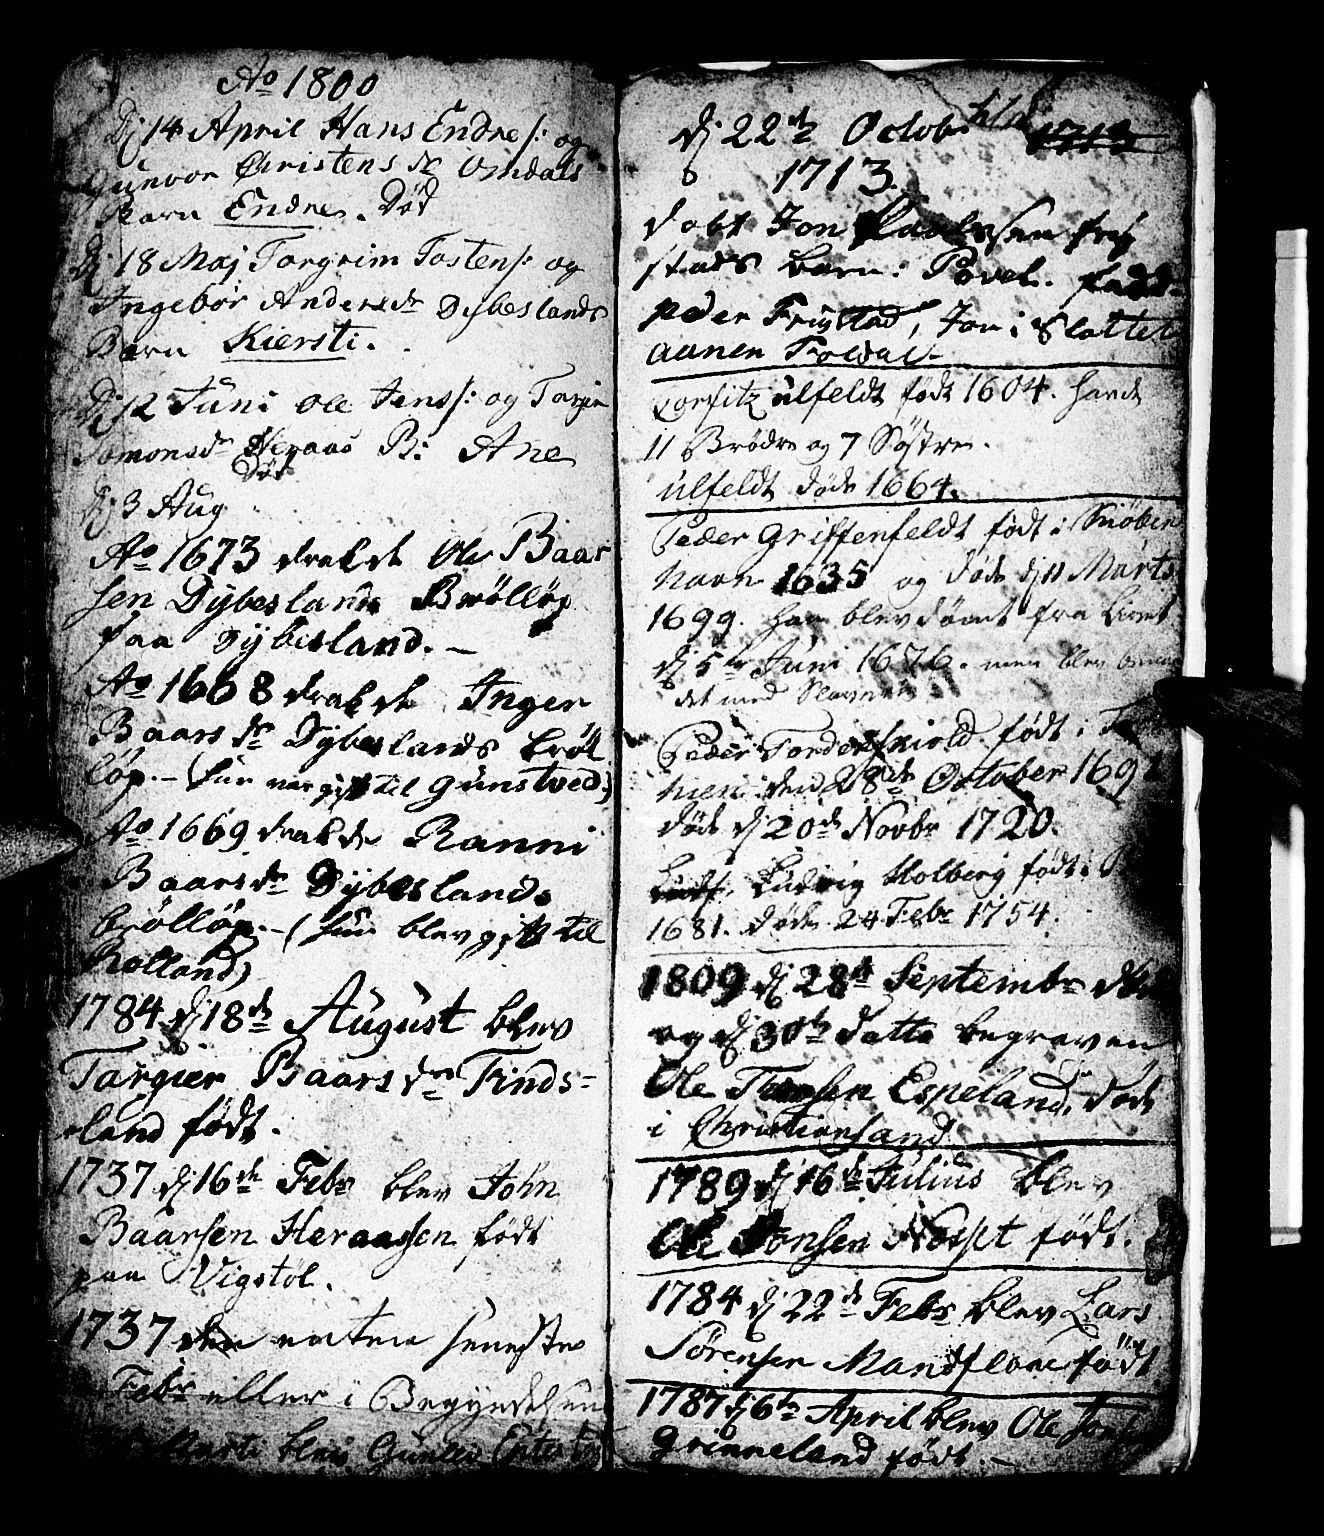 Ao 1800
Dj 14 April Hans Endres: og
Gunvor Christensdr Omdals
Barn Endre. Død
Dj 18 Maj Torgrim Tostens: og
Ingebor Andersdr Dybeslands
Barn Kiersti.
Dj 12 Juni Ole Jens: og Torjer
Simonsdr Heraas B: Ane
Død
Dj 3 Aug
Ao 1673 drakde Ole Baar
sen Dybeslands Brölløp
paa Dybesland.—
Ao 1668 drakde Inger
Baarsdr Dybeslands bröl
løp.— (hun var gift til Gunstved)
Ao 1669 drakde Ranni
Baarsdr Dybeslands
brölløp.— (hun blev gift til
Rolland)
1784 dj 18de August blev
Torgier Baarsdr Finds=
land født.
1737 dj 16de Febr blev John
Baarsen Heraassen født
paa Vigstøl.
1737 den
Febr eller i Begyndelsen
Marti blev Gunild
dj 22de Octob 1713
1713.
døbt Jon Paulssen Fry
stads barn: Povel. fadd=
peder Frystad, Jon i Slottet
aanen Foldal—
Corfitz ulfeldt født 1604. havde
11 Brødre og 7 Søstre.
ulfeldt døde 1664.
Peder Griffenfeldt født i Kiøben
havn 1635 og døde dj 11 Marts
1699. han blev dømt fra Livet
dj 5te Juni 1676. men blev
det med Slavneri
Peder Tordenskiold født i
hiem den 28de October 1691
døde dj 20de Novbr 1720.
Ludv. Ludvig Holberg født i
1681. døde 24 Febr 1754.
1809 dj 28de Septembr døde
og dj 30te datto begraven
Ole Espeland, døde
i Christiansand
1789 dj 16de Julius blev
Ole Jonsen Nøsset født.
1784 dj 22de Febr blev Lars
Sørensen Mandflone født
1787 dj 6te April blev Ole
Grinneland født.—